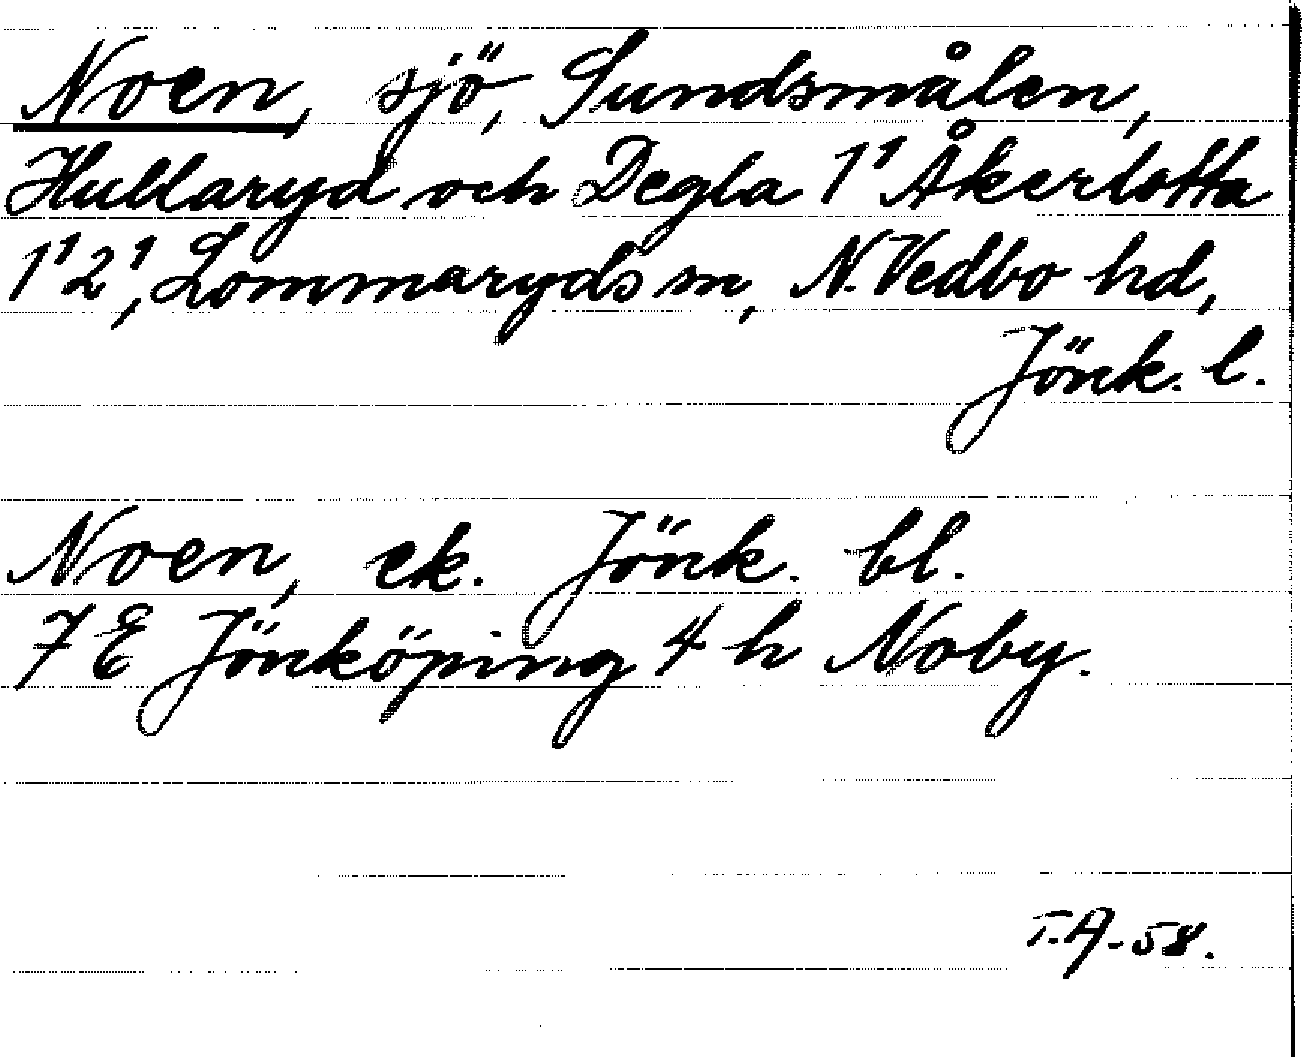 Noen, sjö, Sundsmålen,
Hullaryd och Degla 1¹ Åkerlotta
1¹2¹, Lommaryds sn, N. Vedbo hd,
Jönk. l.
Noen, ek. Jönk. bl.
7 E Jönköping 4 h Noby.
T.A-58.